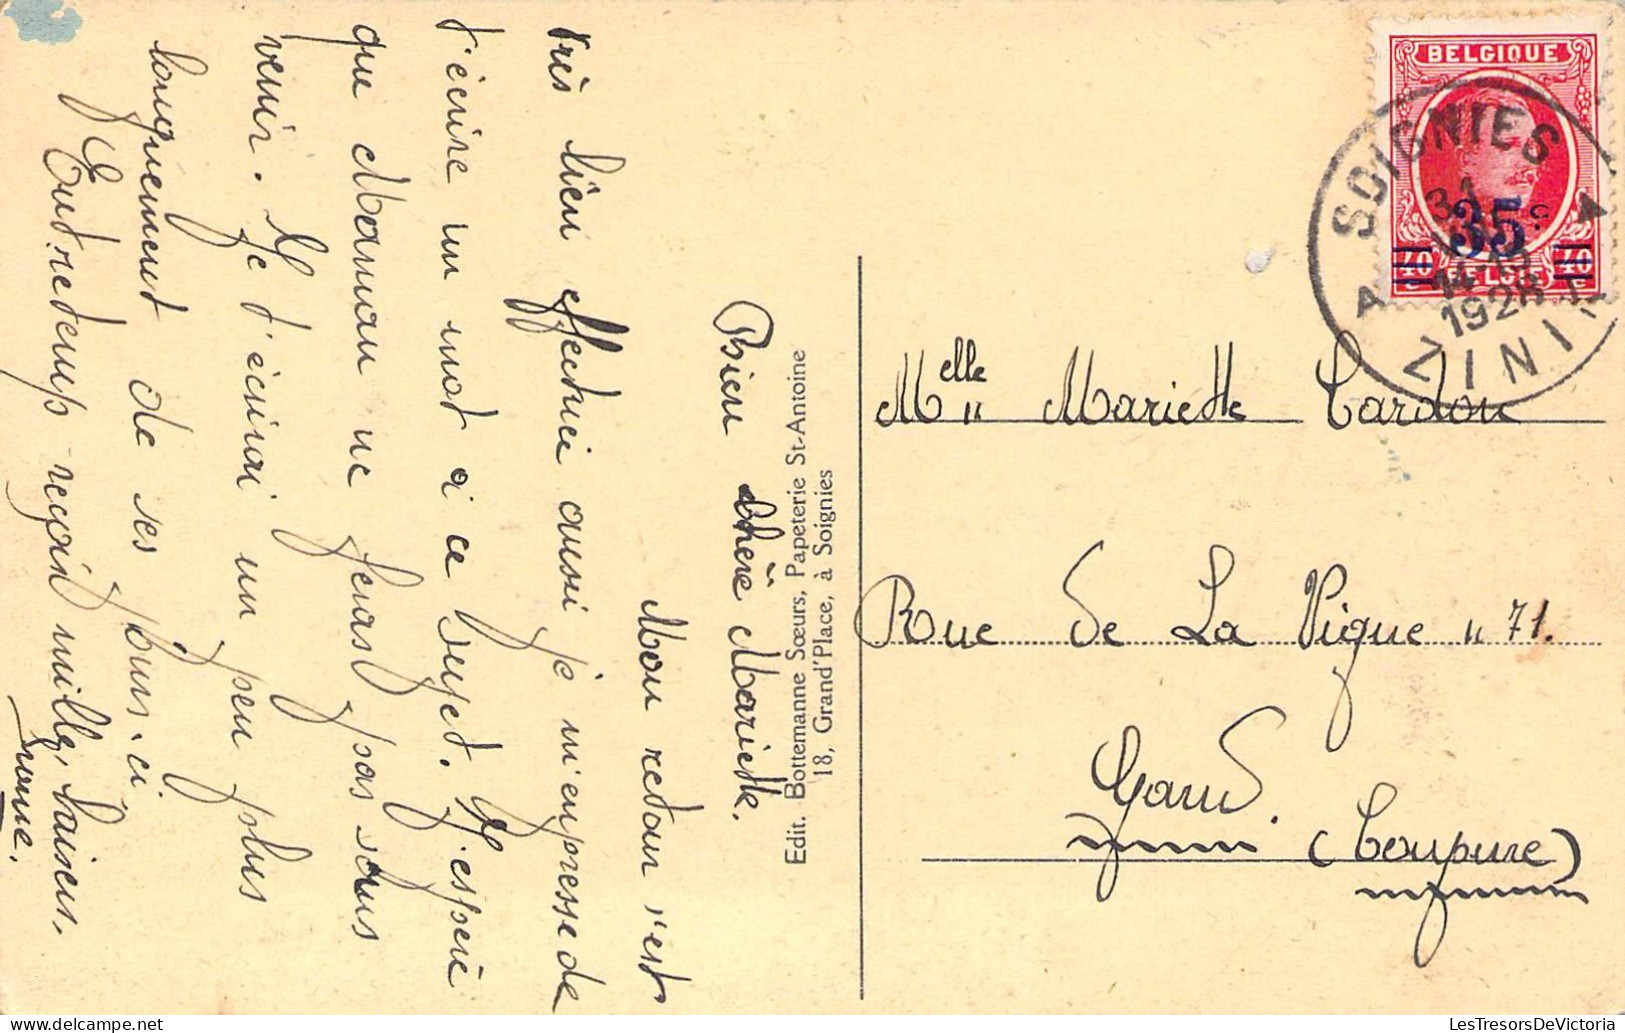 Bien chère Mariette.
Mon retour s'est
très bien effectué aussi je m'empresse de
t'écrire un mot à ce sujet. J'espère
que Maman ne feras pas sans
venir. Je t'écrirai un peu plus
longuement de ses jours-ci.
Entretemps reçoit mille baisers.
Edit. Bottemanne Sœurs, Papeterie St-Antoine
18, Grand'Place, à Soignies
BELGIQUE
35 c
40 BELGIE 40
SOIGNIES
31
14-15
1928
A ZINNIK
Melle Mariette Cardon
Rue de La Vigne 71.
Gand.
(Coupure)
LesTresorsDeVictoria